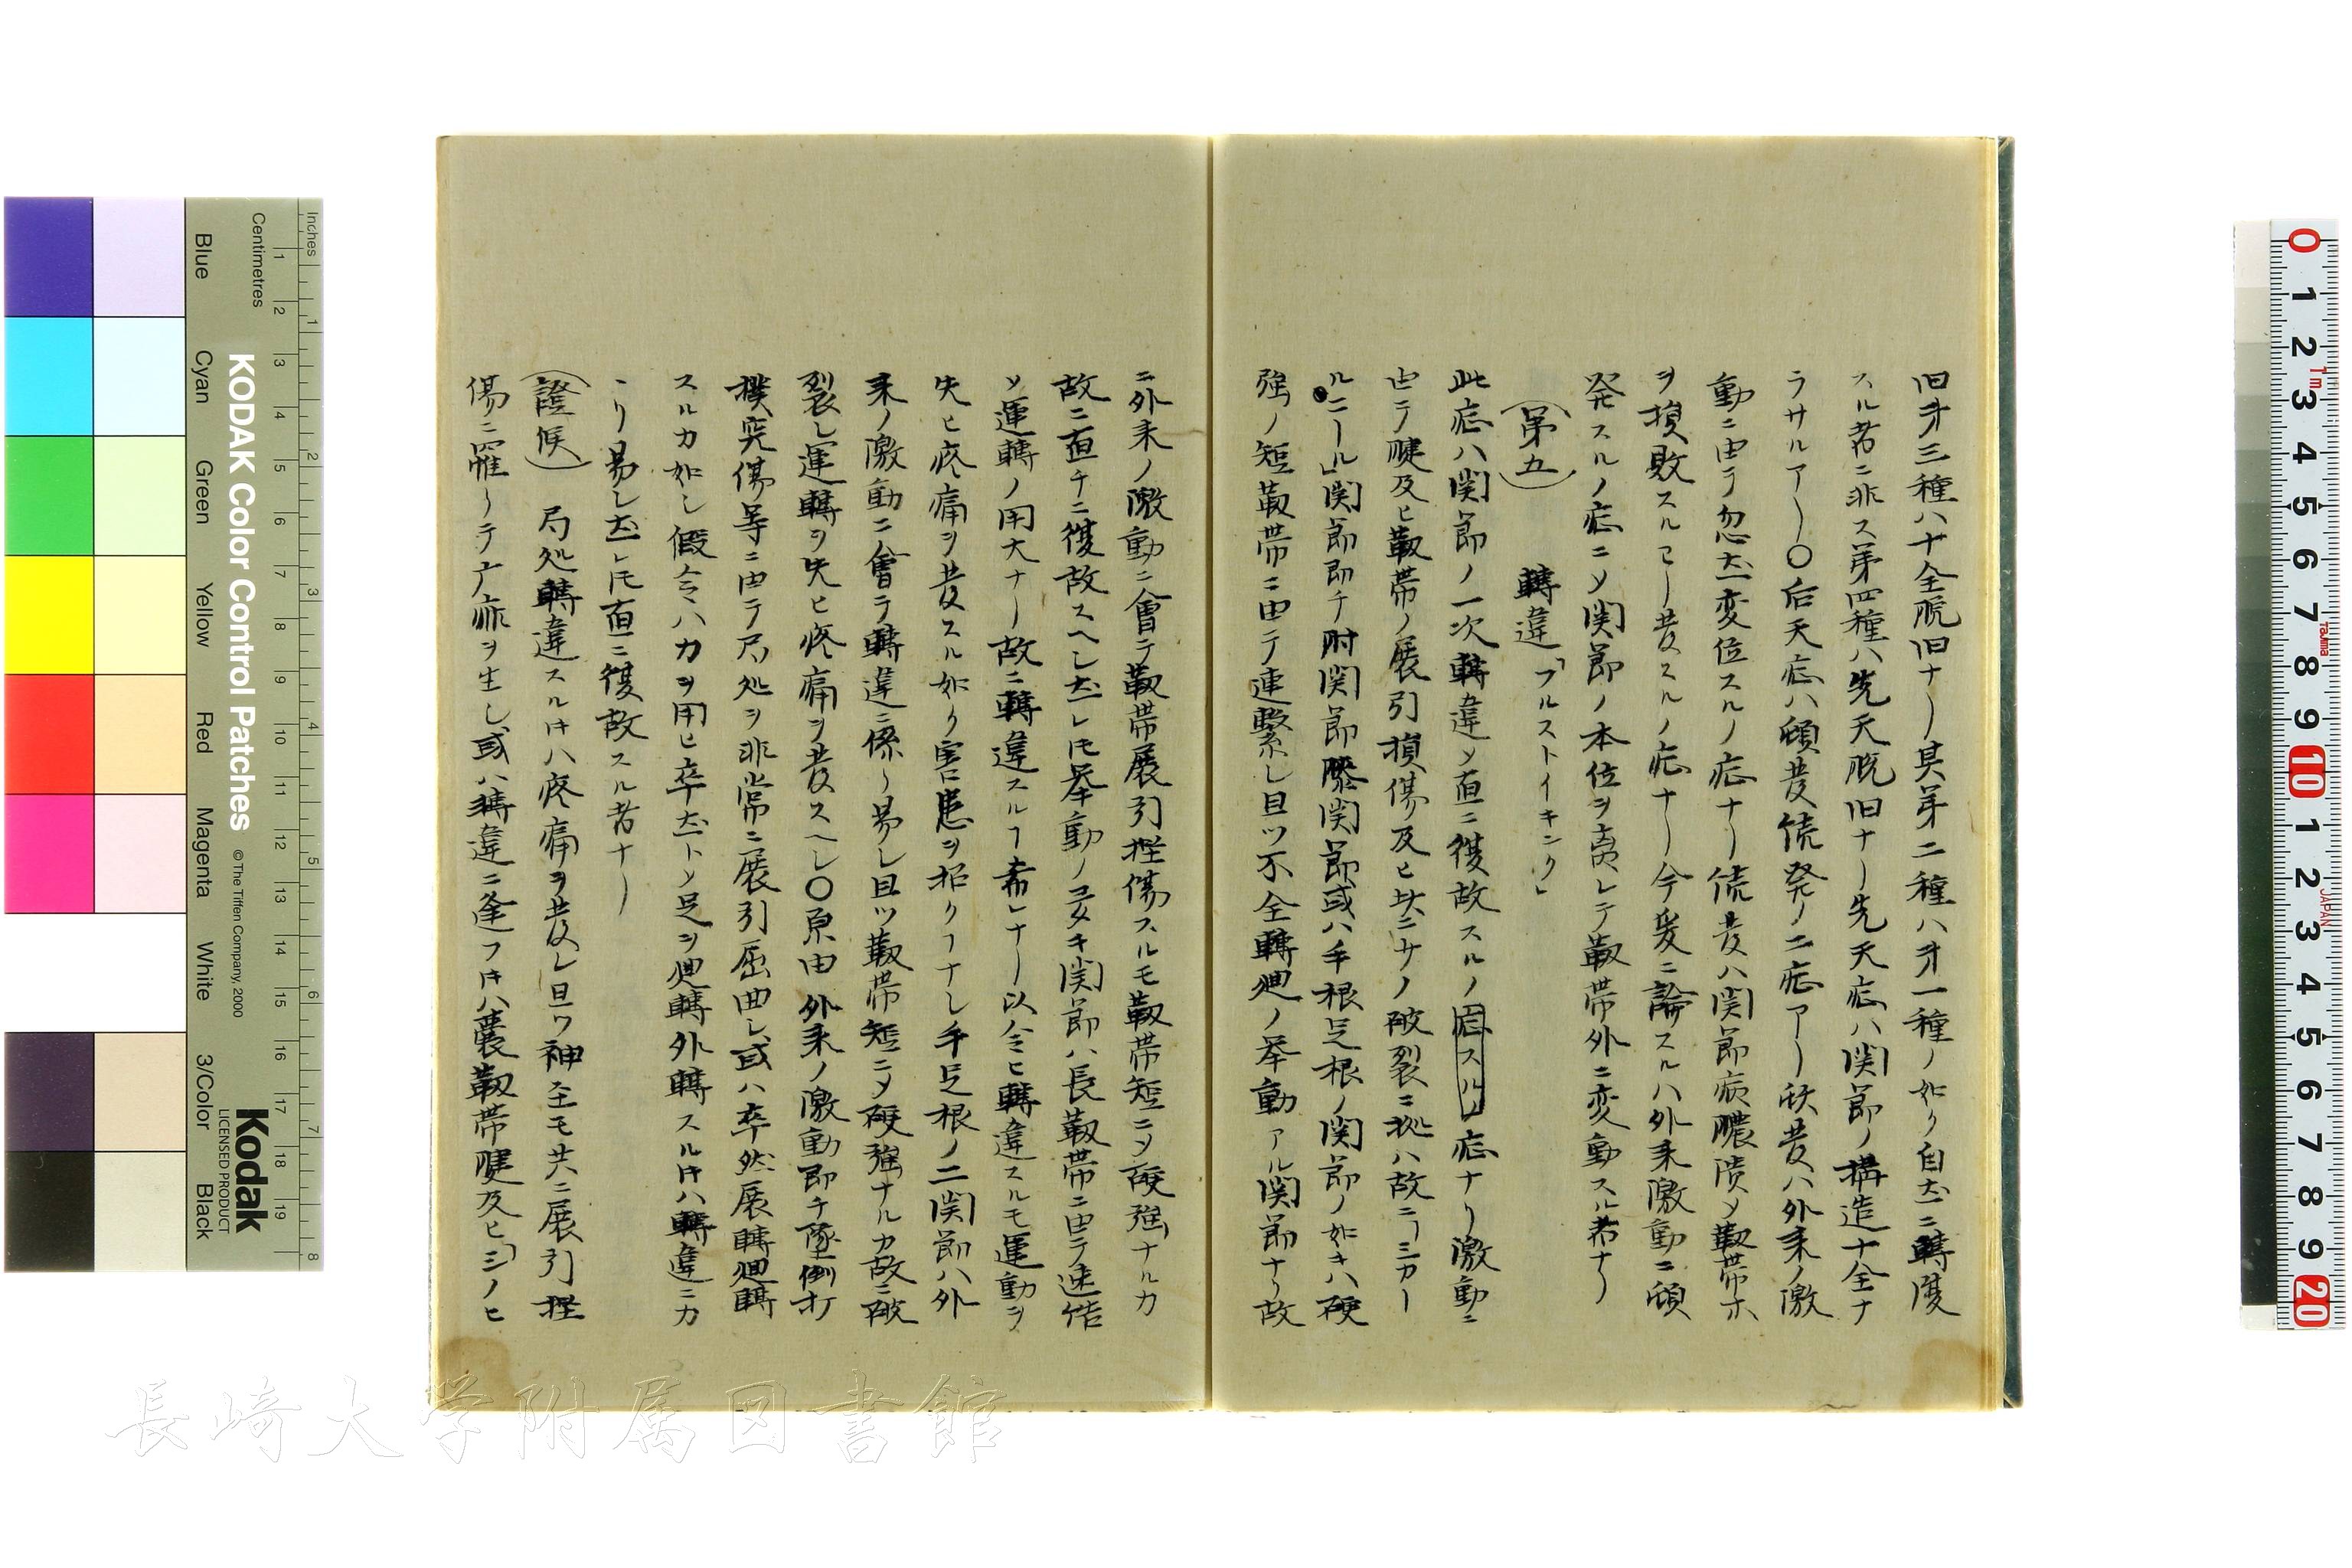 旧オ三種ハ十全脱旧ナリ其第二種ハオ一種ノ如ク自㐧ニ轉度
スル者ニ非ス第四種ハ先天脱旧ナリ先天症ハ関節ノ構造十全ナ
ラサルアリ〇后天症ハ頓発続発ノ二症アリ 発ハ外来ノ激
動ニ由テ忽 変位スルノ症ナリ続発ハ関節病膿潰ノ靱帯ホ
ヲ損敗スル 発スルノ症ナリ今爰ニ論スルハ外来激動ニ頓
発スルノ症ニメ関節ノ本位ヲ离レテ靱帯外ニ変動スル者ナリ
(第五) 轉違「フルストイキンク」
此症ハ関節ノ一次轉違メ直ニ復故スルノ症スルノ症ナリ激動ニ
由テ腱及ヒ靱帯ノ展引損傷及ヒ 破裂ニ拠ハ故ニ
ルニール」関節即チ附関節膝関節或ハ手根足根ノ関節ノ如キハ硬
強ノ短靱帯ニ由テ連繋シ且ツ不全轉廻ノ挙動アル関節ナリ故
ニ外来ノ激動ニ會テ靱帯展引挫傷スルモ靱帯短ニメ硬強ナルカ
故ニ直チニ復故スヘシ レ圧挙動ノ 関節ハ長靱帯ニ由テ連
メ運轉ノ用大ナリ故ニ轉違スルヿ希レナリ以令ヒ轉違スルモ運動ヲ
失ヒ疼痛ヲ発スル如ク害患ヲ招クヿナシ手足根ノ二関節ハ外
来ノ激動ニ會テ轉違ニ係リ易シ且ツ靱帯短ニメ硬強ナルカ故ニ破
裂シ運轉ヲ失ヒ疼痛ヲ発スヘシ〇原由外来ノ激動即チ墜倒打
撲突傷等ニ由テ局処ヲ非常ニ展引屈曲シ或ハ卒然展轉廻轉
スルカ如シ假令ハカヲ用ヒ卒 トメ足ヲ廻轉外轉スル ハ轉違ニカ
リ易シ レ 直ニ復故スル者ナリ
(證候) 局処轉違スル ハ疼痛ヲ発シ且ツ神 モ共ニ展引挫
傷ニ罹リテ 痲ヲ生シ或ハ轉違ニ逢フ ハ嚢靱帯腱及ヒ「 ノヒ
Inches
Centimetres
KODAK Color Control Patches
© The Tiffen Company, 2000
Kodak
LICENSED PRODUCT
Blue Cyan Green Yellow Red Magenta White 3/Color Black
長崎大学附属図書館